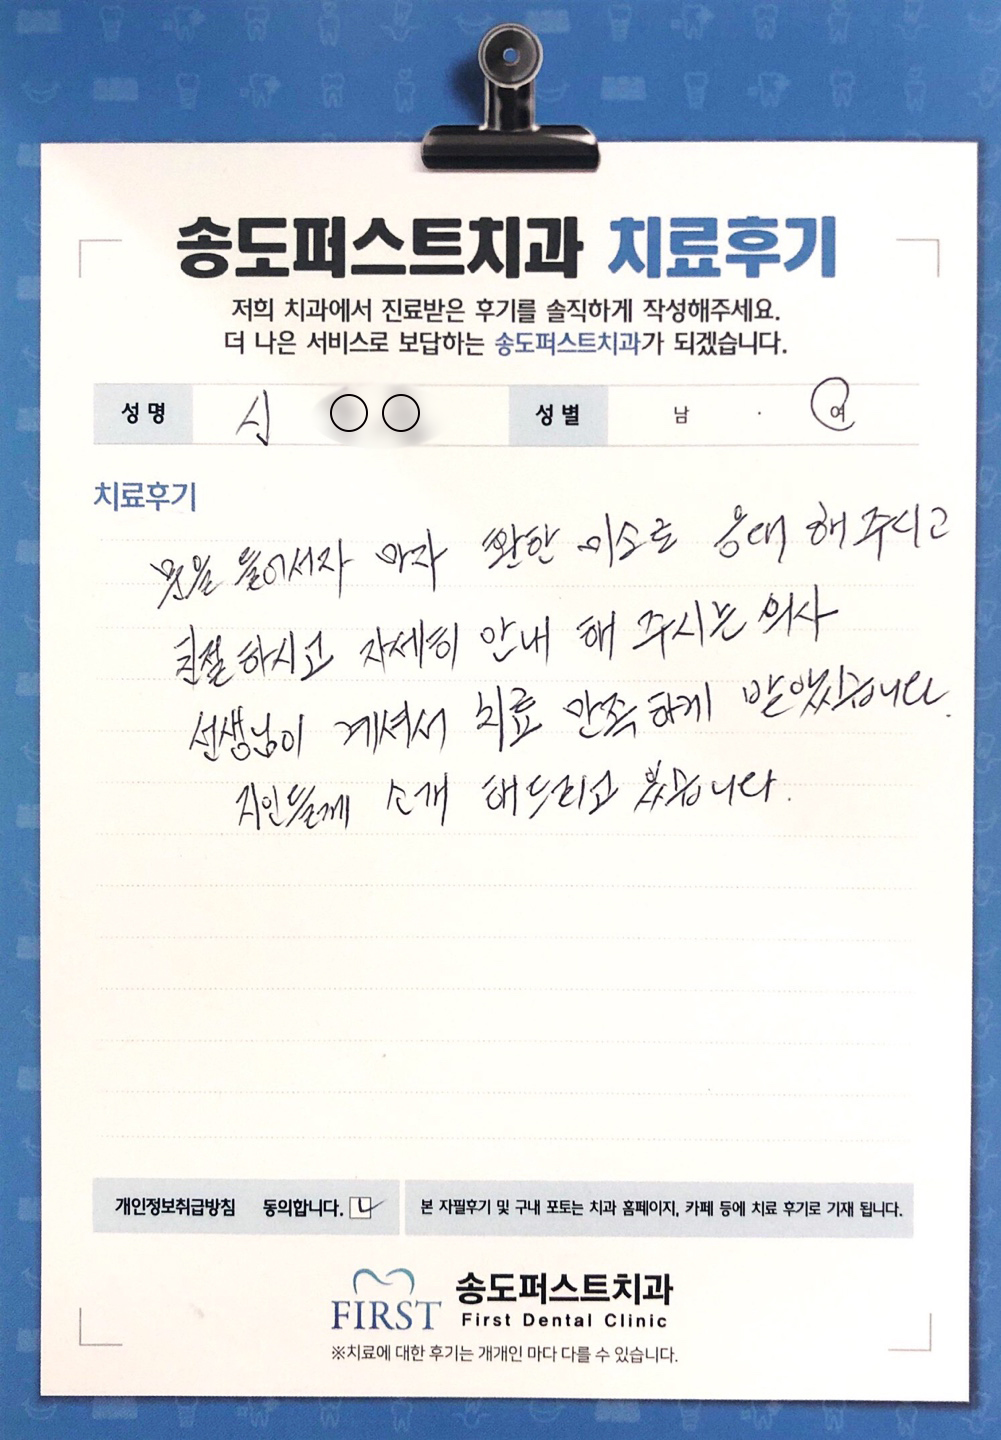 송도퍼스트치과 치료후기
저희 치과에서 진료받은 후기를 솔직하게 작성해주세요.
더 나은 서비스로 보답하는 송도퍼스트치과가 되겠습니다.
성명 심 성별 남 · 여
치료후기
문을 들어서자 마자 환한 미소로 응대 해 주시고
친절하시고 자세히 안내 해 주시는 의사
선생님이 계셔서 치료 만족하게 받았습니다.
지인들께 소개 해드리고 싶습니다.
개인정보취급방침 동의합니다.
본 자필후기 및 구내 포토는 치과 홈페이지, 카페 등에 치료 후기로 기재 됩니다.
FIRST 송도퍼스트치과
First Dental Clinic
※치료에 대한 후기는 개개인 마다 다를 수 있습니다.